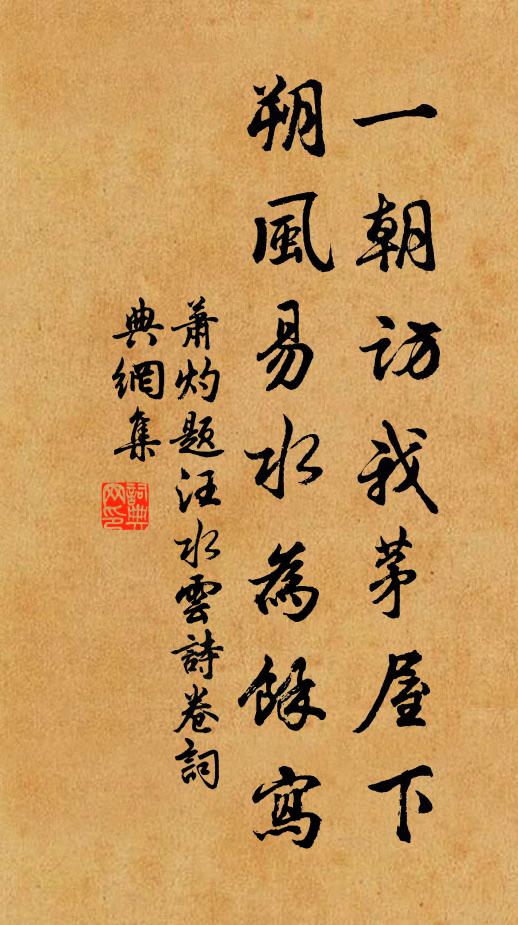 一朝訪我茅屋下
朔風易水為餘寫
蕭灼題汪水雲詩卷詞
典網集
詞典
网印